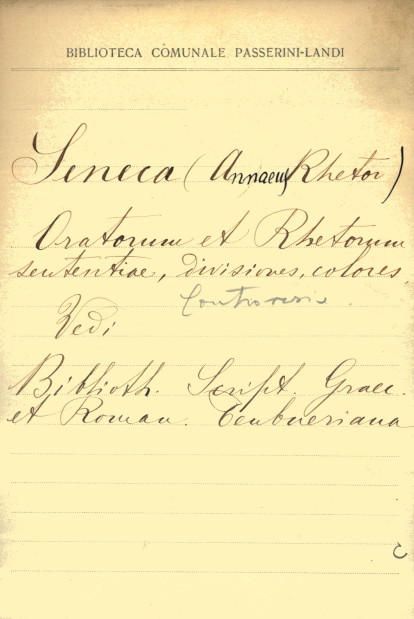 BIBLIOTECA COMUNALE PASSERINI-LANDI
Seneca (Annaeus Rhetor)
Oratorum et Rhetorum
sententiae, divisiones, colores.
Vedi
Biblioth. Script. Graec.
et Roman. Teubneriana